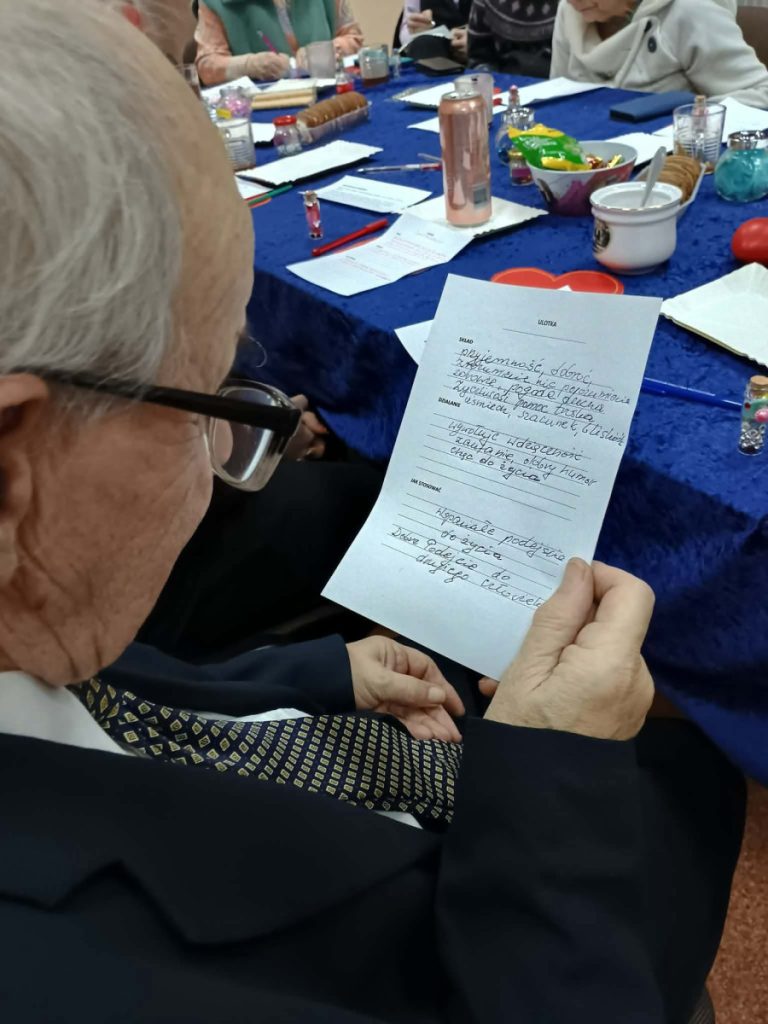 ULOTKA
SKŁAD
przyjemność, dobroć
zrozumienie nie porozumienie
zdrowie, pogoda ducha
życzliwość pomoc troska
uśmiech, szacunek, bliskość
DZIAŁANIE
wywołuje wdzięczność
zaufanie, dobry humor
chęć do życia
JAK STOSOWAĆ
Wspaniałe podejście
do życia
Dobre Podejście do
drugiego człowieka